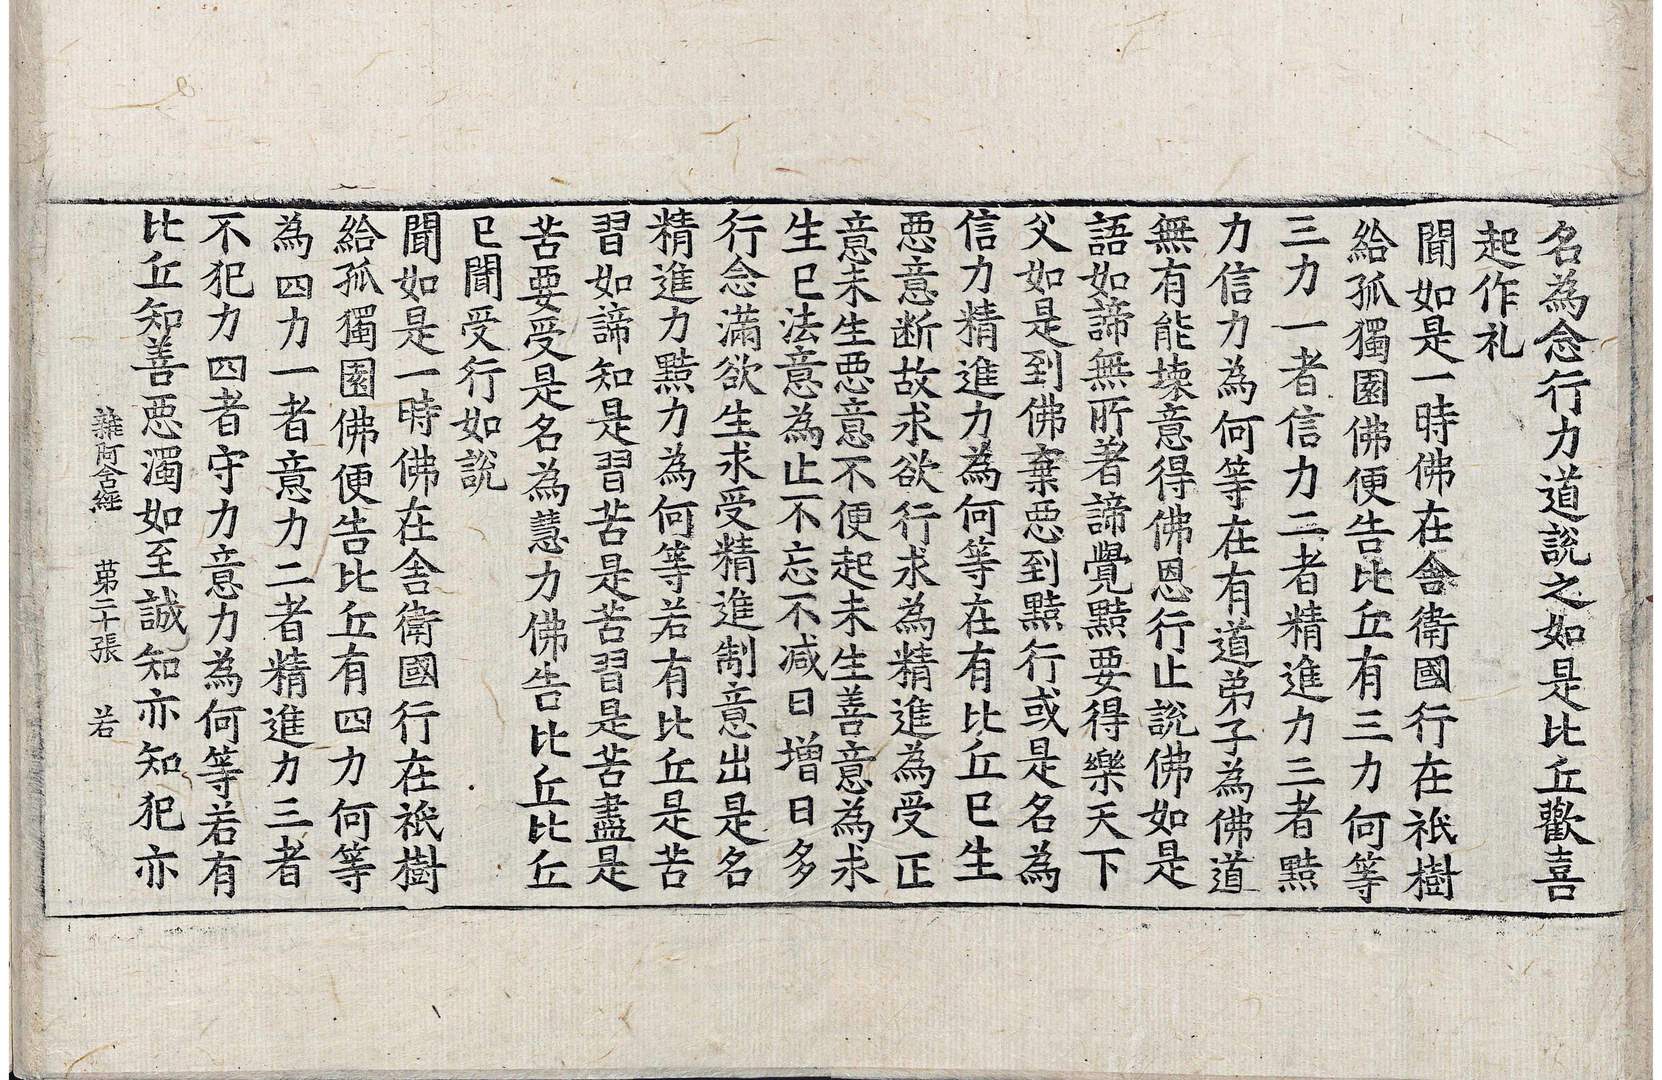 名為念行力道說之如是比丘歡喜
起作礼
聞如是一時佛在舍衛國行在祇樹
給孤獨園佛便告比丘有三力何等
三力一者信力二者精進力三者黠
力信力為何等在有道弟子為佛道
無有能壞意得佛恩行止說佛如是
語如諦無所著諦覺黠要得樂天下
父如是到佛棄惡到黠行或是名為
信力精進力為何等在有比丘已生
惡意断故求欲行求為精進為受正
意未生惡意不便起未生善意為求
生已法意為止不忘不减日增日多
行念滿欲生求受精進制意出是名
精進力黠力為何等若有比丘是苦
習如諦知是習苦是苦習是苦盡是
苦要受是名為慧力佛告比丘比丘
已聞受行如說
聞如是一時佛在舍衛國行在祇樹
給孤獨園佛便告比丘有四力何等
為四力一者意力二者精進力三者
不犯力四者守力意力為何等若有
比丘知善惡濁如至誠知亦知犯亦
雜阿含經 苐二十張 若